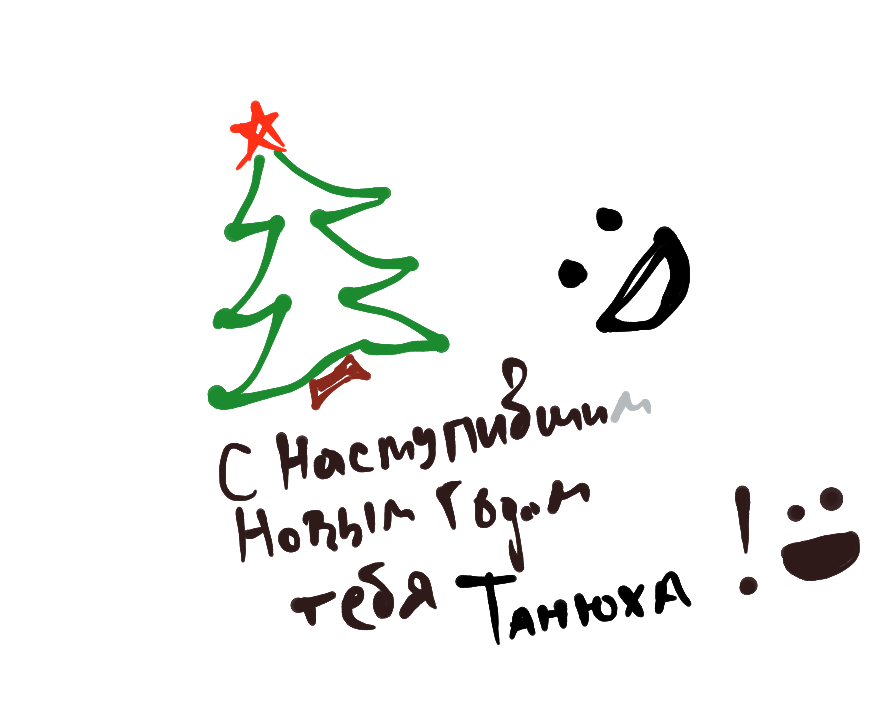 С Наступившим
Новым Годом
тебя Танюха!